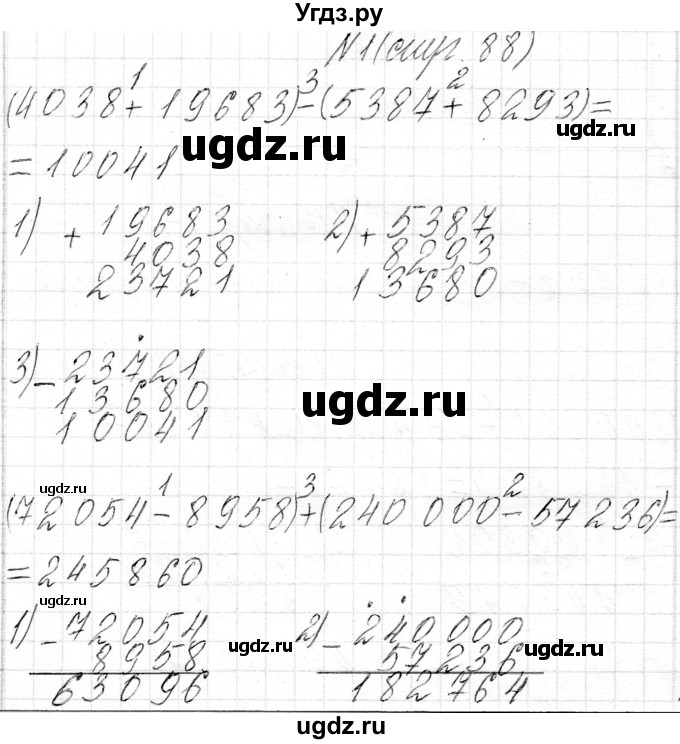 Угдз.ру
N1(стр. 88)
(4038 + 19683) - (5387 + 8293) =
1 3 2
ugdz.ru
= 10041
ugdz.ru
1) + 19683
4038
23721
2) + 5387
8293
13680
3) - 23721
13680
10041
ugdz.ru
ugdz.ru
1 3 2
(72054 - 8958) + (240 000 - 57 236) =
= 245 860
ugdz.ru
1) - 72054
8958
63096
ugdz.ru
2) - 240 000
57 236
182 764
ugdz.ru
ugdz.ru